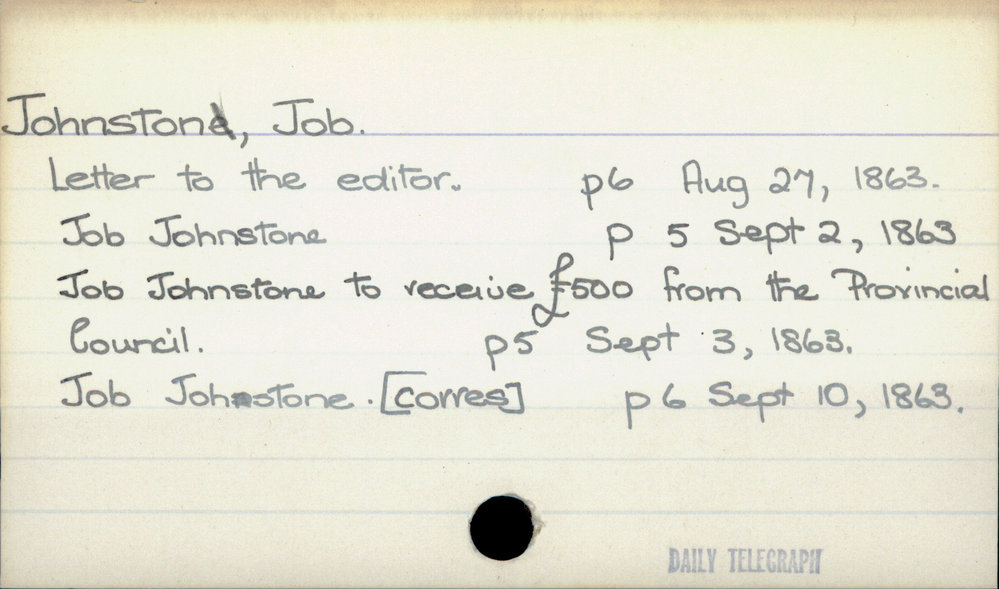 Johnston, Job.
Letter to the editor. p6 Aug 27, 1863.
Job Johnstone p 5 Sept 2, 1863
Job Johnstone to receive £500 from the Provincial
Council. p5 Sept 3, 1863.
Job Johnstone. [Corres] p 6 Sept 10, 1863.
DAILY TELEGRAPH